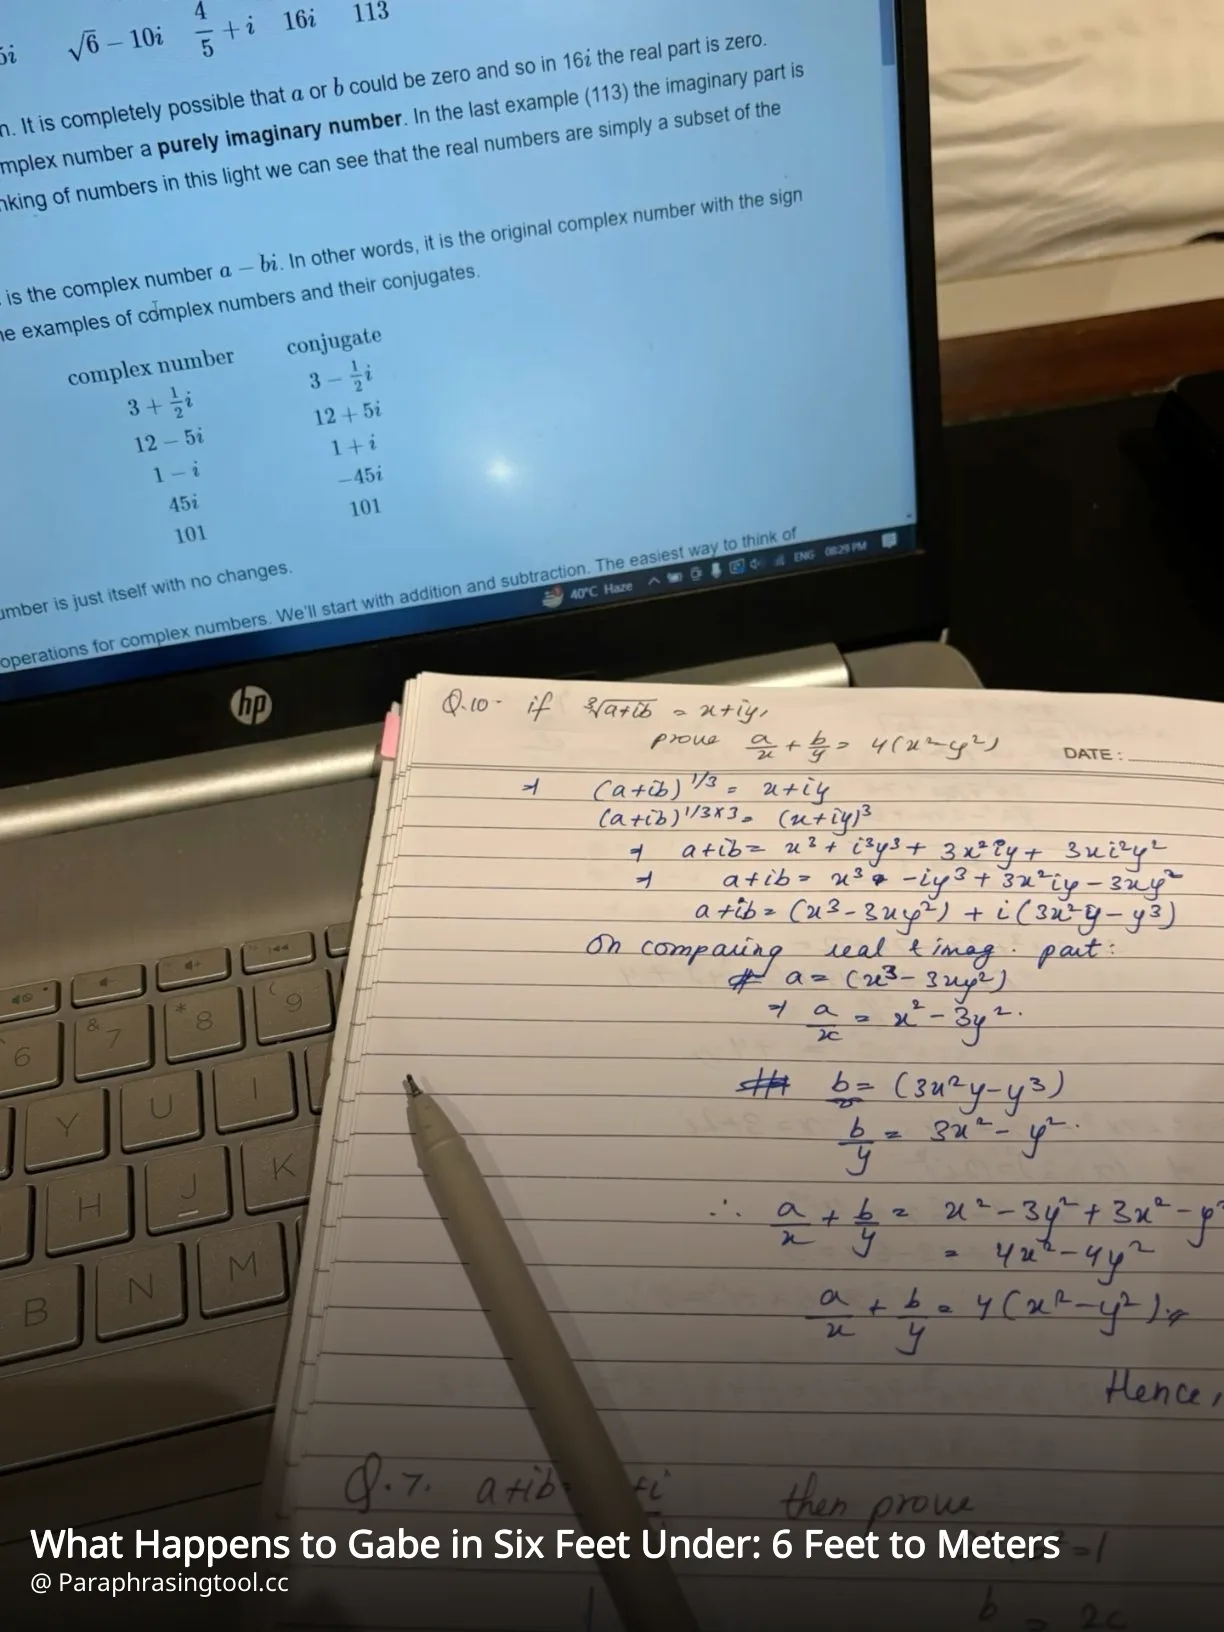 5i √6 − 10i 4/5 + i 16i 113
n. It is completely possible that a or b could be zero and so in 16i the real part is zero.
mplex number a purely imaginary number. In the last example (113) the imaginary part is
nking of numbers in this light we can see that the real numbers are simply a subset of the
is the complex number a − bi. In other words, it is the original complex number with the sign
ne examples of complex numbers and their conjugates.
complex number conjugate
3 + 1/2 i 3 − 1/2 i
12 − 5i 12 + 5i
1 − i 1 + i
45i −45i
101 101
umber is just itself with no changes.
operations for complex numbers. We'll start with addition and subtraction. The easiest way to think of
40°C Haze ENG 08:29 PM
hp
Q.10- if ∛(a+ib) = x+iy,
prove a/x + b/y = 4(x²-y²)
DATE:
⇒ (a+ib)^1/3 = x+iy
(a+ib)^1/3×3 = (x+iy)³
⇒ a+ib = x³ + i³y³ + 3x²iy + 3xi²y²
⇒ a+ib = x³ -iy³ + 3x²iy - 3xy²
a+ib = (x³-3xy²) + i(3x²y-y³)
On comparing real & imag. part:
a = (x³-3xy²)
⇒ a/x = x²-3y².
b = (3x²y-y³)
b/y = 3x²-y².
∴ a/x + b/y = x²-3y²+3x²-y²
= 4x²-4y²
a/x + b/y = 4(x²-y²).
Hence,
Q.7. a+ib= +i then prove
=1
b = 2c
6 & 7 * 8 ( 9
Y U I
H J K
B N M
What Happens to Gabe in Six Feet Under: 6 Feet to Meters
@ Paraphrasingtool.cc